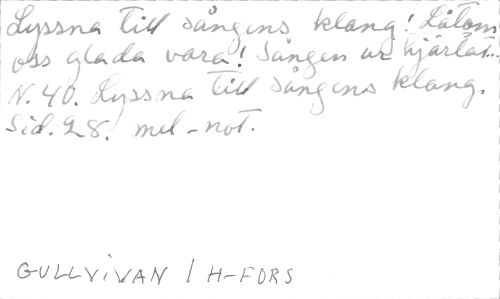 Lyssna till sångens klang! Låtom
oss glada vara! Sången ur hjärtat...
N. 40. Lyssna till sångens klang.
Sid. 28. mel-not.
GULLVIVAN / H-FORS